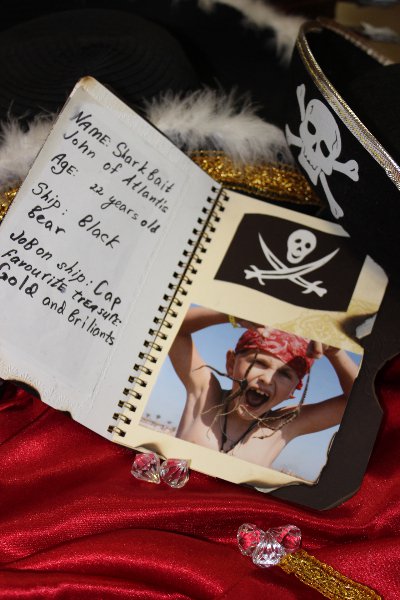 NAME: Shark Bait
John of Atlantis
Age: 22 years old
Ship: Black
Bear
Job on ship: Cap
favourite treasure:
Gold and Briliants